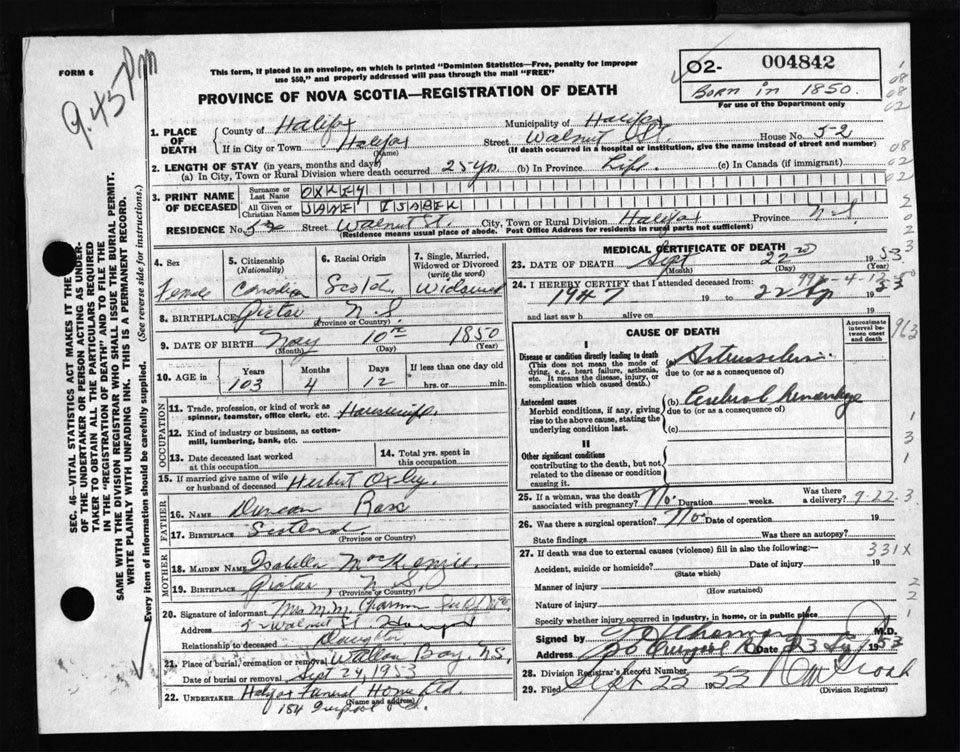 9.45 Pm
FORM 6
This form, if placed in an envelope, on which is printed "Dominion Statistics—Free, penalty for improper
use $50," and properly addressed will pass through the mail "FREE"
PROVINCE OF NOVA SCOTIA—REGISTRATION OF DEATH
02- 004842
Born in 1850.
For use of the Department only
1. PLACE OF DEATH
County of Halifax Municipality of Halifax
If in City or Town Halifax (Name) Street Walnut St. House No. 52
(If death occurred in a hospital or institution, give the name instead of street and number)
2. LENGTH OF STAY (in years, months and days)
(a) In City, Town or Rural Division where death occurred 25 yrs (b) In Province Life. (c) In Canada (if immigrant)
3. PRINT NAME OF DECEASED
Surname or Last Name OXLEY
All Given or Christian Names JANE ISABEL
RESIDENCE No. 52 Street Walnut St. City, Town or Rural Division Halifax Province N.S.
(Residence means usual place of abode. Post Office Address for residents in rural parts not sufficient)
4. Sex Female
5. Citizenship (Nationality) Canadian
6. Racial Origin Scotch
7. Single, Married, Widowed or Divorced (write the word) Widowed
8. BIRTHPLACE Pictou, N.S.
(Province or Country)
9. DATE OF BIRTH May 10th 1850
(Month) (Day) (Year)
10. AGE in Years Months Days If less than one day old
103 4 12 hrs. or min.
OCCUPATION
11. Trade, profession, or kind of work as spinner, teamster, office clerk, etc. Housewife.
12. Kind of industry or business, as cotton-mill, lumbering, bank, etc.
13. Date deceased last worked at this occupation
14. Total yrs. spent in this occupation
15. If married give name of wife or husband of deceased Herbert Oxley.
FATHER
16. NAME Duncan Ross
17. BIRTHPLACE Scotland
(Province or Country)
MOTHER
18. MAIDEN NAME Isabella MacKenzie
19. BIRTHPLACE Pictou, N.S.
(Province or Country)
20. Signature of informant Mrs M.M.
Address 52 Walnut St Halifax
Relationship to deceased Daughter
21. Place of burial, cremation or removal Wallace Bay, N.S.
Date of burial or removal Sept 24, 1953
22. UNDERTAKER Halifax Funeral Home Ltd.
(Name and Address)
184
MEDICAL CERTIFICATE OF DEATH
23. DATE OF DEATH Sept 22nd 1953
(Month) (Day) (Year)
24. I HEREBY CERTIFY that I attended deceased from:
1947 19 to 22 1953
and last saw h alive on
CAUSE OF DEATH
Approximate interval between onset and death
I
Disease or condition directly leading to death
(This does not mean the mode of dying, e.g., heart failure, asthenia, etc. It means the disease, injury, or complication which caused death.)
(a)
due to (or as a consequence of)
Antecedent causes
Morbid conditions, if any, giving rise to the above cause, stating the underlying condition last.
(b) Cerebral hemorrhage
due to (or as a consequence of)
(c)
II
Other significant conditions
contributing to the death, but not related to the disease or condition causing it.
25. If a woman, was the death associated with pregnancy? No. Duration weeks. Was there a delivery?
9-22-3
26. Was there a surgical operation? No. Date of operation 19
State findings Was there an autopsy?
27. If death was due to external causes (violence) fill in also the following:—
331X
Accident, suicide or homicide? Date of injury 19
(State which)
Manner of injury
(How sustained)
Nature of injury
Specify whether injury occurred in industry, in home, or in public place
Signed by M.D.
Address Date 23 1953
28. Division Registrar's Record Number
29. Filed Sept 23 1953
(Division Registrar)
SEC. 46—VITAL STATISTICS ACT MAKES IT THE DUTY
OF THE UNDERTAKER OR PERSON ACTING AS UNDER-
TAKER TO OBTAIN ALL THE PARTICULARS REQUIRED
IN THE "REGISTRATION OF DEATH" AND TO FILE THE
SAME WITH THE DIVISION REGISTRAR WHO SHALL ISSUE THE BURIAL PERMIT.
WRITE PLAINLY WITH UNFADING INK. THIS IS A PERMANENT RECORD.
Every item of information should be carefully supplied. (See reverse side for instructions.)